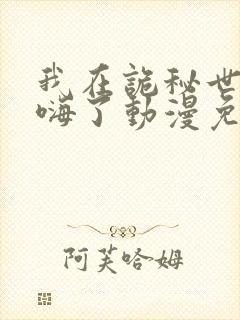 我在詭秘世
嗨了動漫免
阿芙哈姆